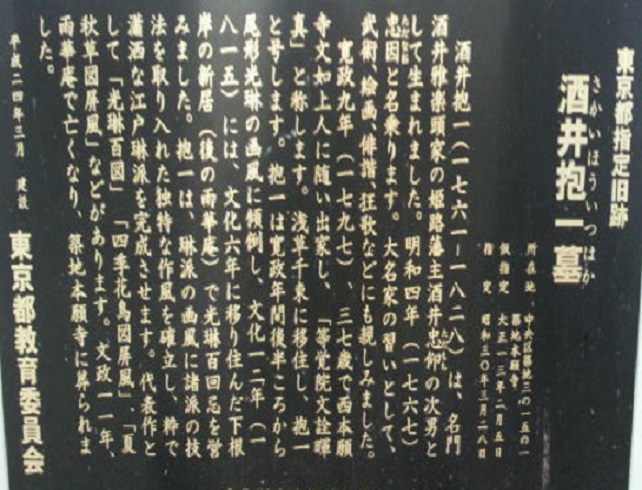 東京都指定旧跡
さかいほういつはか
酒井抱一墓
所在地 中央区築地三の一五の一
築地本願寺
仮指定 大正一三年二月五日
指定 昭和三〇年三月二八日
酒井抱一(一七六一―一八二八)は、名門
酒井雅楽頭家の姫路藩主酒井忠仰の次男と
して生まれました。明和四年(一七六七)
忠因と名乗ります。大名家の習いとして、
武術、絵画、俳諧、狂歌などにも親しみました。
寛政九年(一七九七)、三七歳で西本願
寺文如上人に随い出家し、「等覚院文詮暉
真」と称します。浅草千束に移住し、抱一
と号します。抱一は寛政年間後半ころから
尾形光琳の画風に傾倒し、文化一二年(一
八一五)には、文化六年に移り住んだ下根
岸の新居(後の雨華庵)で光琳百回忌を営
みました。抱一は、琳派の画風に諸派の技
法を取り入れた独特な作風を確立し、粋で
瀟洒な江戸琳派を完成させます。代表作と
して「光琳百図」「四季花鳥図屏風」「夏
秋草図屏風」などがあります。文政一一年、
雨華庵で亡くなり、築地本願寺に葬られま
した。
平成二四年三月 建設
東京都教育委員会